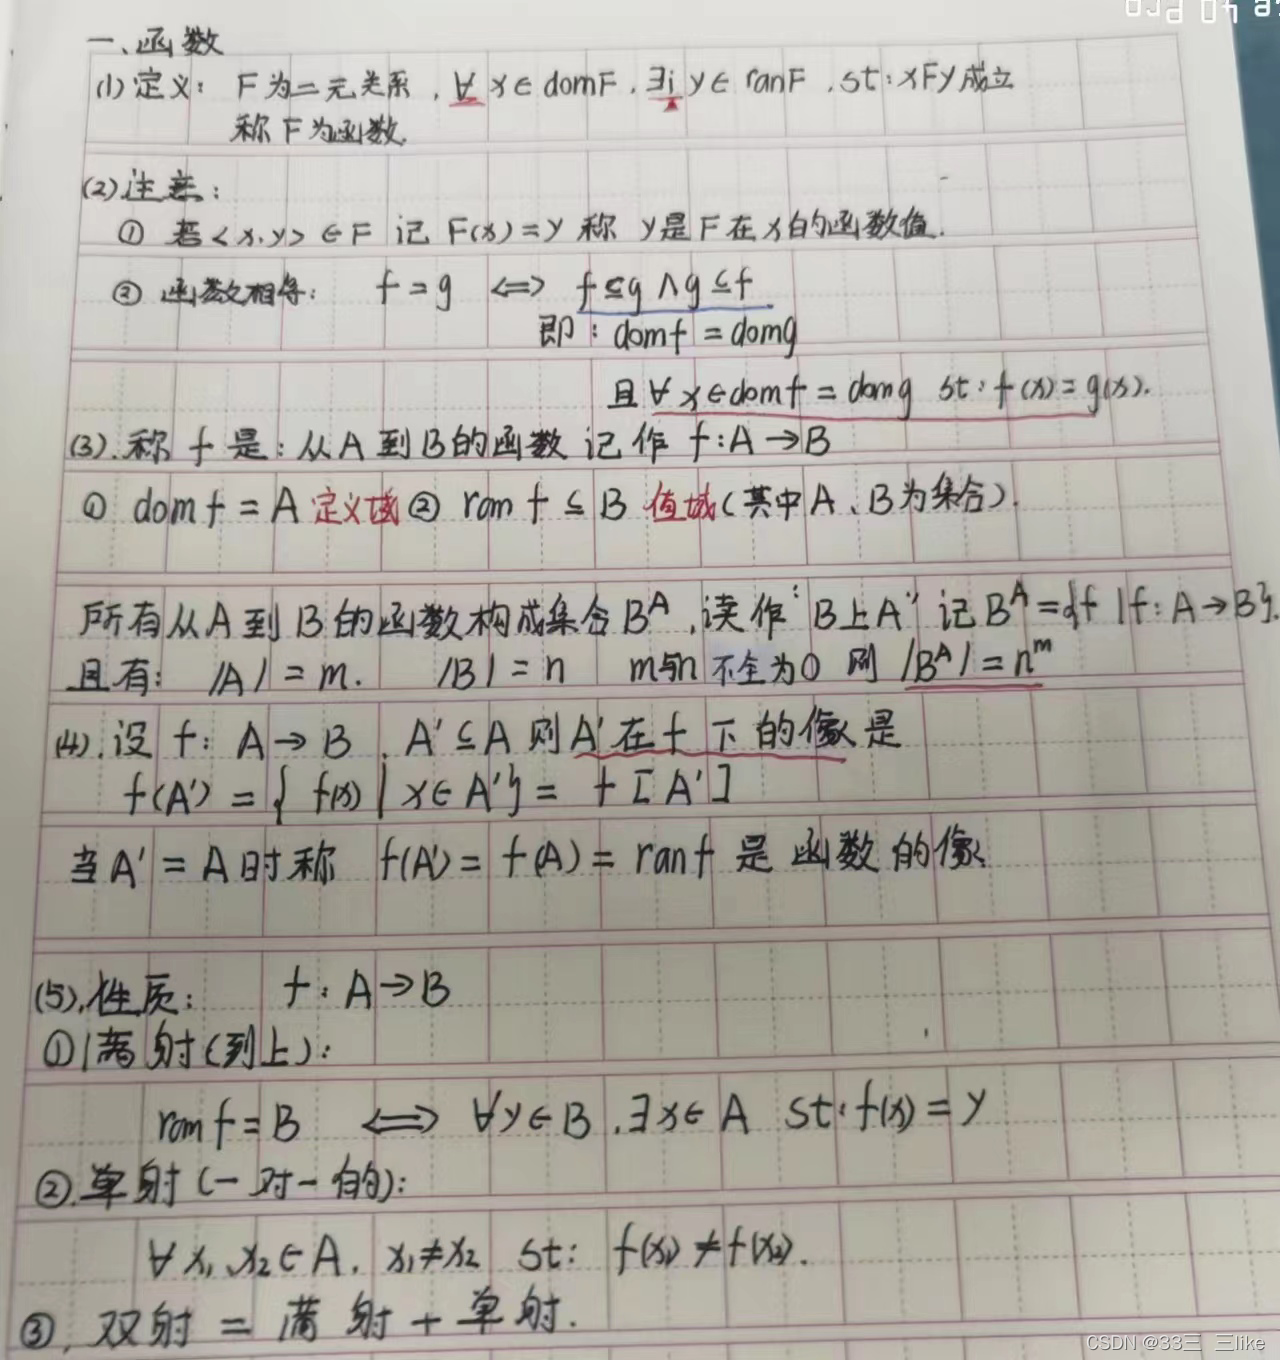 一、函数
(1)定义: F为二元关系, ∀ x∈domF, ∃! y∈ranF, st: xFy成立
称F为函数.
(2)注意:
① 若<x,y>∈F 记 F(x)=y 称 y是F在x的函数值.
② 函数相等: f=g ⟺ f⊆g∧g⊆f
即: domf=domg
且∀x∈domf=domg st: f(x)=g(x).
(3).称f是:从A到B的函数 记作 f:A→B
① domf=A 定义域 ② ranf⊆B 值域(其中A、B为集合).
所有从A到B的函数构成集合B^A,读作"B上A" 记B^A={f|f:A→B}.
且有: |A|=m. |B|=n m与n不全为0 则 |B^A|=n^m
(4).设f: A→B, A'⊆A则A'在f下的像是
f(A')={f(x)|x∈A'}=f[A']
当A'=A时称 f(A')=f(A)=ranf 是函数的像.
(5).性质: f:A→B
①满射(到上):
ranf=B ⟺ ∀y∈B,∃x∈A st:f(x)=y
②.单射(一对一的):
∀x₁,x₂∈A, x₁≠x₂ st: f(x₁)≠f(x₂).
③.双射=满射+单射.
CSDN @33三 三like